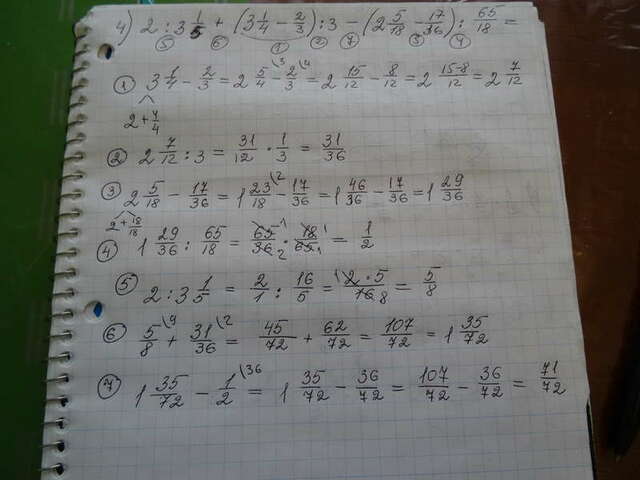 4) 2 : 3 1/5 + (3 1/4 - 2/3) : 3 - (2 5/18 - 17/36) : 65/18 =
⑤ ⑥ ① ② ⑦ ③ ④
① 3 1/4 - 2/3 = 2 5/4 \3 - 2/3 \4 = 2 15/12 - 8/12 = 2 15-8/12 = 2 7/12
2 + 4/4
② 2 7/12 : 3 = 31/12 · 1/3 = 31/36
③ 2 5/18 - 17/36 = 1 23/18 \2 - 17/36 = 1 46/36 - 17/36 = 1 29/36
2 + 18/18
④ 1 29/36 : 65/18 = 65/36 · 18/65 = 1/2
⑤ 2 : 3 1/5 = 2/1 : 16/5 = 2·5/16 8 = 5/8
⑥ 5/8 \9 + 31/36 \2 = 45/72 + 62/72 = 107/72 = 1 35/72
⑦ 1 35/72 - 1/2 \36 = 1 35/72 - 36/72 = 107/72 - 36/72 = 71/72